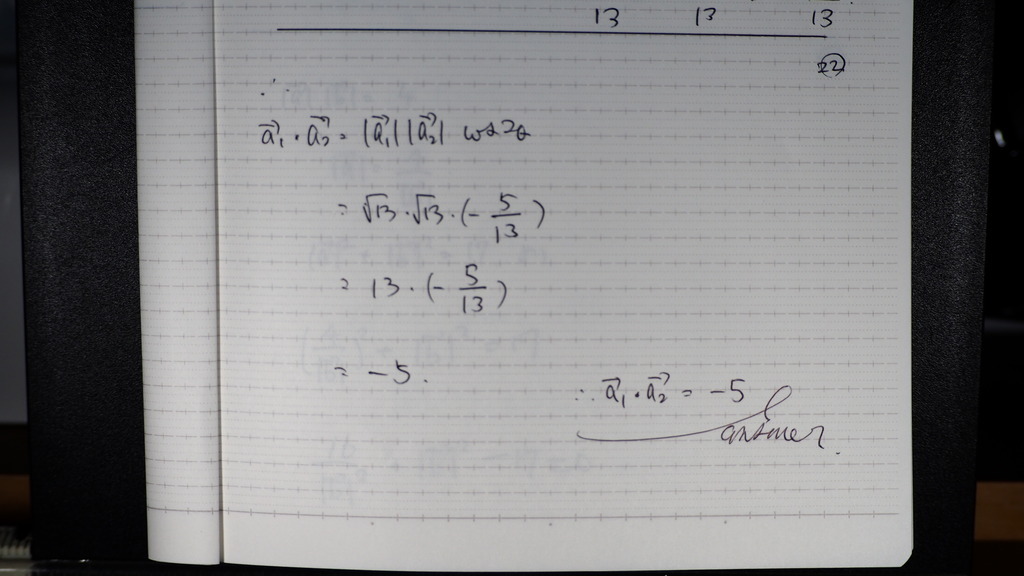 13 13 13
22
∴
a⃗₁・a⃗₂ = |a⃗₁||a⃗₂| cos2θ
= √13・√13・(-5/13)
= 13・(-5/13)
= -5.
∴ a⃗₁・a⃗₂ = -5
answer.